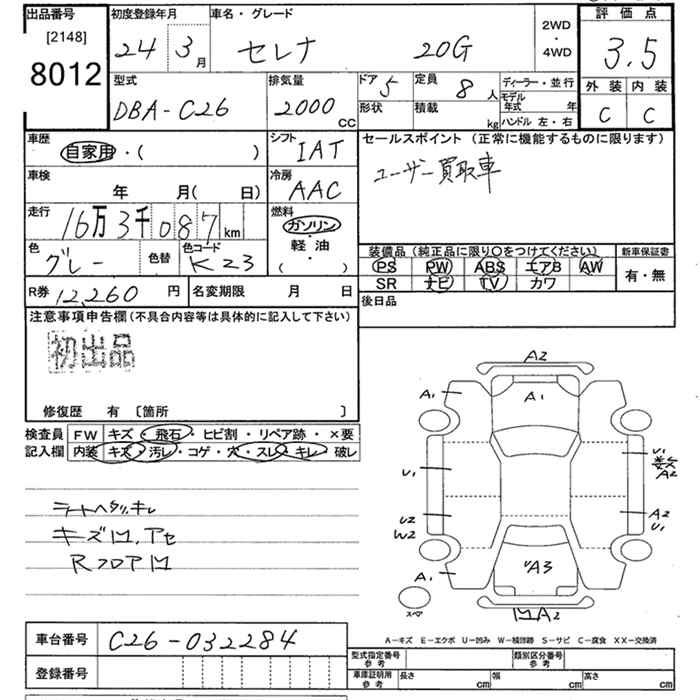 出品番号 初度登録年月 車名・グレード 2WD・4WD 評価点
[2148]
8012 24 3月 セレナ 20G 3.5
型式 排気量 ドア 5 定員 8人 ディーラー・並行 外装 内装
DBA-C26 2000cc 形状 積載 kg モデル年式 年 C C
ハンドル 左・右
車歴 シフト セールスポイント (正常に機能するものに限ります)
自家用・( ) IAT ユーザー買取車
車検 冷房
年 月( 日) AAC
走行 燃料
16万3千087km ガソリン・軽油
色 色替 色コード ( )
グレー K23
装備品 (純正品に限り○をつけてください) 新車保証書
PS PW ABS エアB AW 有・無
SR ナビ TV カワ
R券 12,260円 名変期限 月 日 後日品
注意事項申告欄(不具合内容等は具体的に記入して下さい)
初出品
修復歴 有 〔箇所 〕
検査員 FW キズ・飛石・ヒビ割・リペア跡・×要
記入欄 内装 キズ・汚レ・コゲ・穴・スレ・キレ・破レ
シートヘタリ、キレ
キズ凹、アセ
Rフロア凹
A2
A1 A1
U1 U1
数
A2
U2
W2 A2
U1
A1 A3
スペア 凹A2
A-キズ E-エクボ U-凹み W-補修跡 S-サビ C-腐食 XX-交換済
車台番号 C26-032284
型式指定番号 参考 類別区分番号 参考
登録番号 車庫証明用 参考 長さ cm 幅 cm 高さ cm